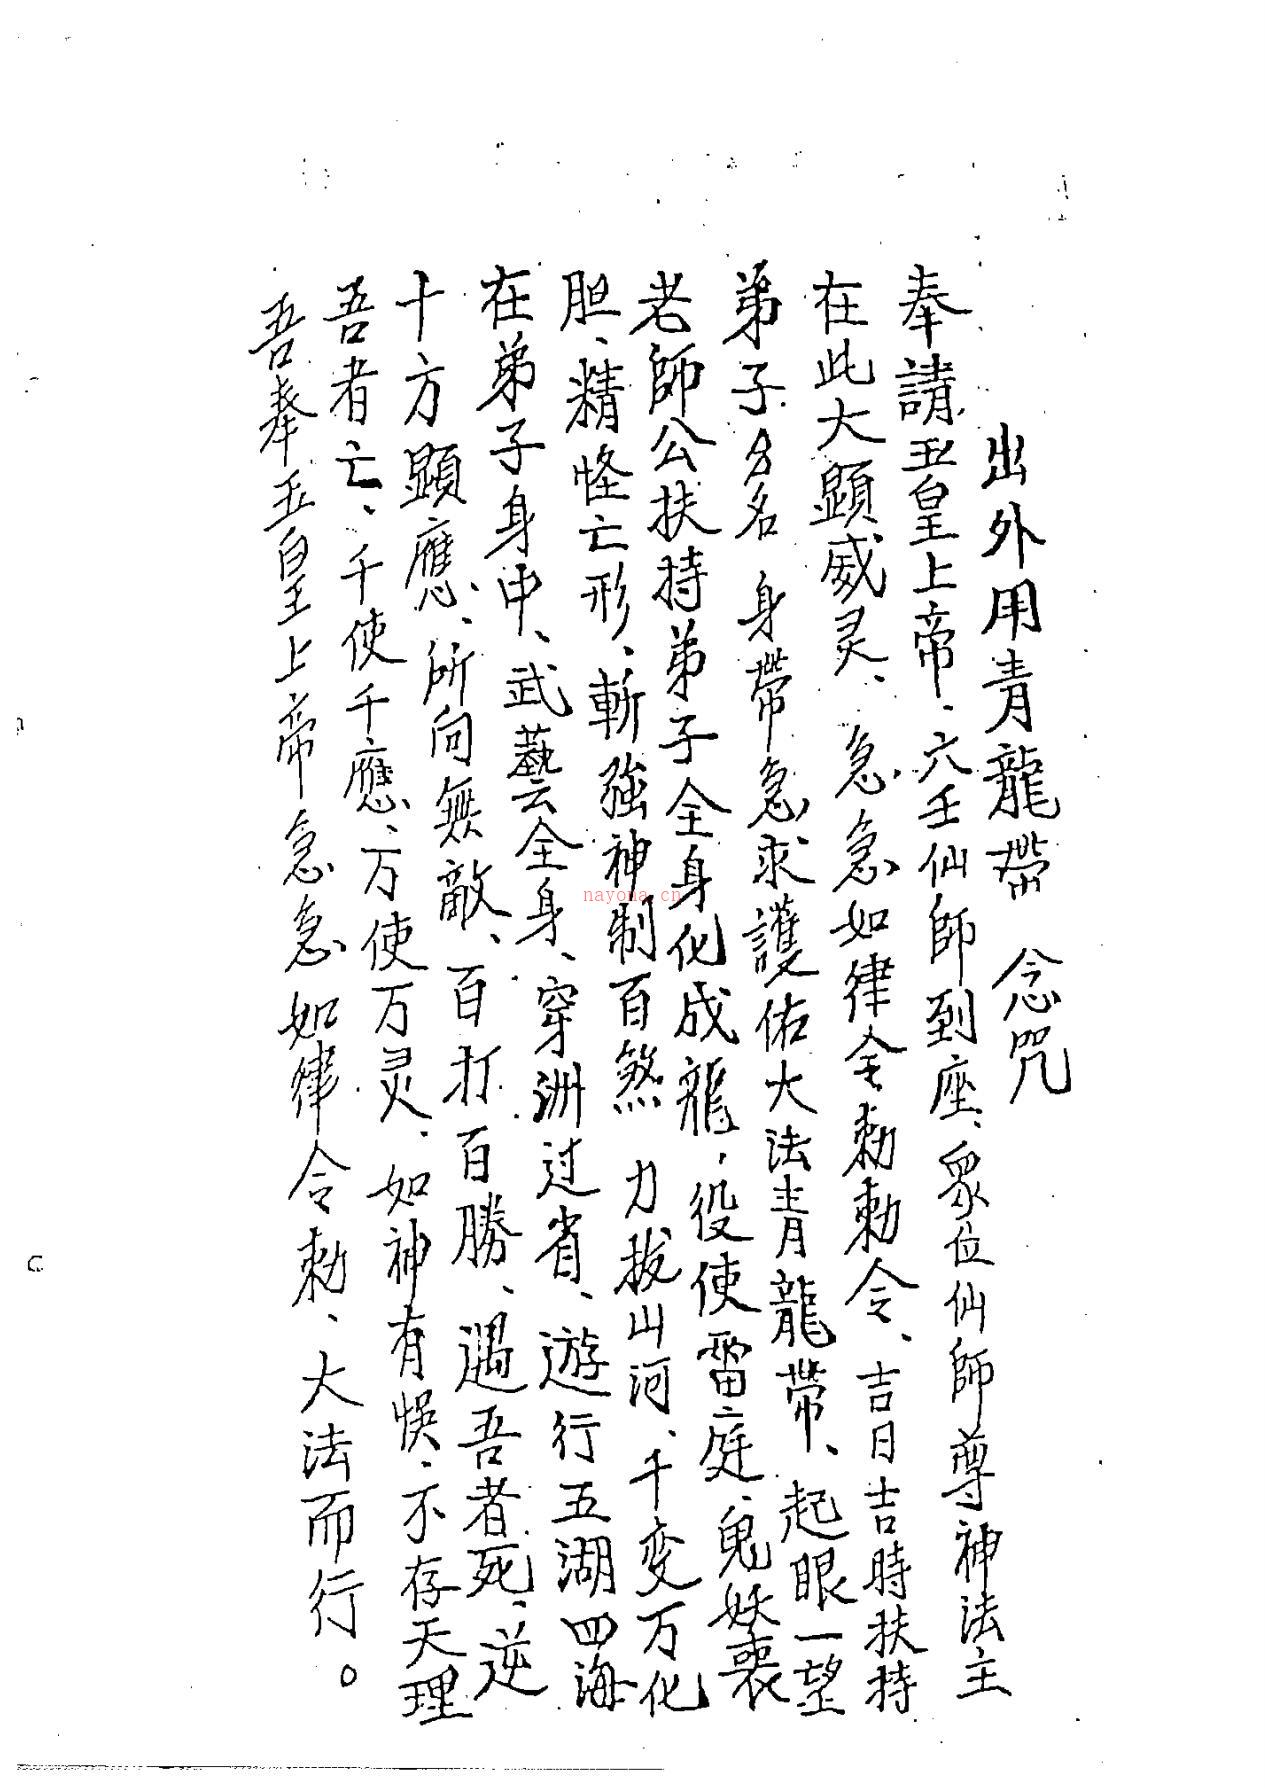 出外用青龍帶 念咒
奉請玉皇上帝、六壬仙師到座、眾位仙師尊神法主
在此大顕威灵、急急如律令勅勅令、吉日吉時扶持
弟子 名 身帶急求護佑大法青龍帶、起眼一望
老師公扶持弟子全身化成龍，役使雷庭、鬼妖喪
胆、精怪亡形、斬強神制百煞 力拔山河、千变万化
在弟子身中、武藝全身、穿洲过省、遊行五湖四海
十方顕應、所向無敵、百打百勝、遇吾者死、逆
吾者亡、千使千應、万使万灵、如神有悮、不存天理
吾奉玉皇上帝急急如律令勅、大法而行。
nayona.cn